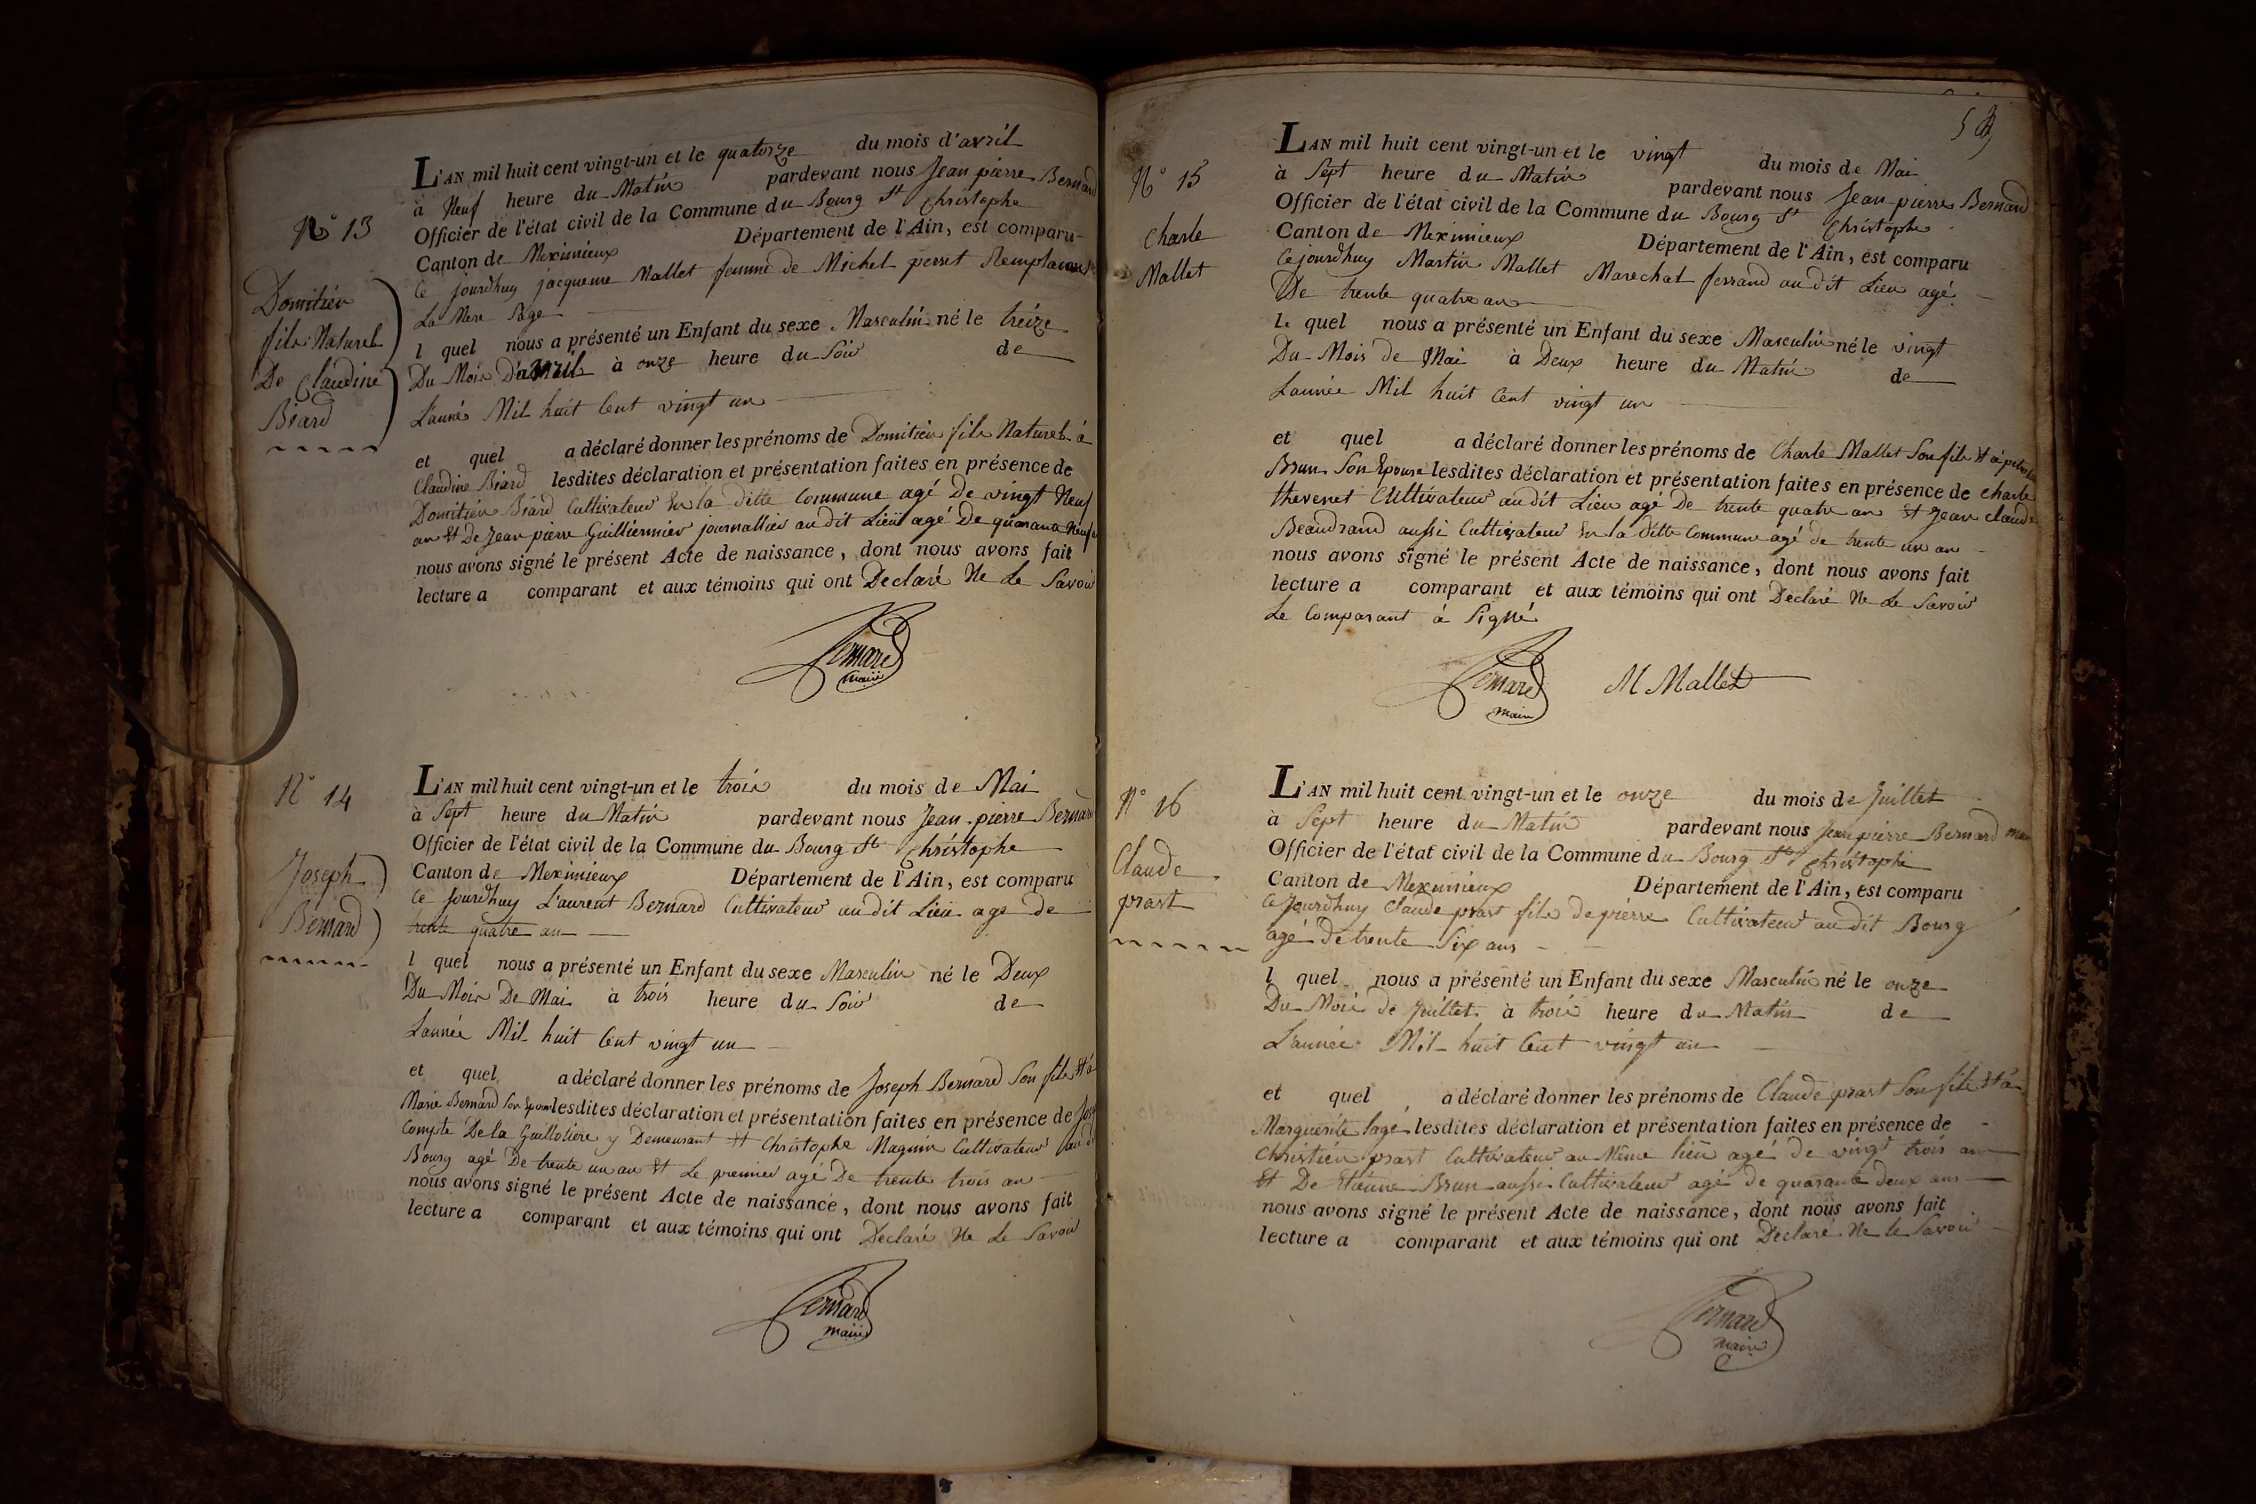 N° 13
Domitien
fils Naturel
De Claudine
Biard
L'AN mil huit cent vingt-un et le quatorze du mois d'avril
à Neuf heure du Matin pardevant nous Jean pierre Bernard
Officier de l'état civil de la Commune du Bourg St Christophe
Canton de Meximieux Département de l'Ain, est comparu
Ce jourdhuy jacqueme Mallet femme de Michel perret Remplacant
La Mere Sage
l quel nous a présenté un Enfant du sexe Masculin né le treize
Du Mois D'avril à onze heure du Soir de
L'année Mil huit Cent vingt un
et quel a déclaré donner les prénoms de Domitien fils Naturel à
Claudine Biard lesdites déclaration et présentation faites en présence de
Domitien Biard Cultivateur En la ditte Commune agé De vingt Neuf
an Et De Jean pierre Guillermier journallier au dit Lieu agé De quarante Neuf
nous avons signé le présent Acte de naissance, dont nous avons fait
lecture a comparant et aux témoins qui ont Declaré Ne Le Savoir
Bernard
maire
N° 14
Joseph
Bernard
L'AN mil huit cent vingt-un et le trois du mois de Mai
à Sept heure du Matin pardevant nous Jean pierre Bernard
Officier de l'état civil de la Commune du Bourg St Christophe
Canton de Meximieux Département de l'Ain, est comparu
Ce Jourdhuy Laurent Bernard Cultivateur au dit Lieu age de
trente quatre an
l quel nous a présenté un Enfant du sexe Masculin né le Deux
Du Mois De Mai à trois heure du Soir de
Lannée Mil huit Cent vingt un
et quel a déclaré donner les prénoms de Joseph Bernard Son fils Et à
Marie Bernard Son Epouse lesdites déclaration et présentation faites en présence de
Compte De la Guillotiere y Demeurant Et Christophe Magnin Cultivateur
Bourg agé De trente un an Et Le premier agé De trente trois an
nous avons signé le présent Acte de naissance, dont nous avons fait
lecture a comparant et aux témoins qui ont Declaré Ne Le Savoir
Bernard
maire
N° 15
Charle
Mallet
L'AN mil huit cent vingt-un et le vingt du mois de Mai
à Sept heure du Matin pardevant nous Jean pierre Bernard
Officier de l'état civil de la Commune du Bourg St Christophe
Canton de Meximieux Département de l'Ain, est comparu
Cejourdhuy Martin Mallet Marechal ferrand au dit Lieu agé
De trente quatre an
Le quel nous a présenté un Enfant du sexe Masculin né le vingt
Du Mois de Mai à Deux heure du Matin de
Lannée Mil huit Cent vingt un
et quel a déclaré donner les prénoms de Charle Mallet Son fils Et à
Brun Son Epouse lesdites déclaration et présentation faites en présence de Charle
thevenet Cultivateur au dit Lieu agé De trente quatre an Et Jean Claude
Beaudrand aussi Cultivateur En la ditte Commune agé de trente un an
nous avons signé le présent Acte de naissance, dont nous avons fait
lecture a comparant et aux témoins qui ont Declaré Ne Le Savoir
Le Comparant à Signé
Bernard
maire
M Mallet
N° 16
Claude
prast
L'AN mil huit cent vingt-un et le onze du mois de Juillet
à Sept heure du Matin pardevant nous Jean pierre Bernard
Officier de l'état civil de la Commune du Bourg St Christophe
Canton de Meximieux Département de l'Ain, est comparu
Ce Jourdhuy Claude prast fils de pierre Cultivateur au dit Bourg
agé De trente Six ans
l quel nous a présenté un Enfant du sexe Masculin né le onze
Du Mois de Juillet à trois heure du Matin de
Lannée Mil huit Cent vingt un
et quel a déclaré donner les prénoms de Claude prast Son fils Et à
Marguerite lagé lesdites déclaration et présentation faites en présence de
Christien prast Cultivateur au Même lieu agé de vingt trois an
Et De Etienne Brun aussi Cultivateur agé de quarante deux ans
nous avons signé le présent Acte de naissance, dont nous avons fait
lecture a comparant et aux témoins qui ont Declaré Ne le Savoir
Bernard
maire